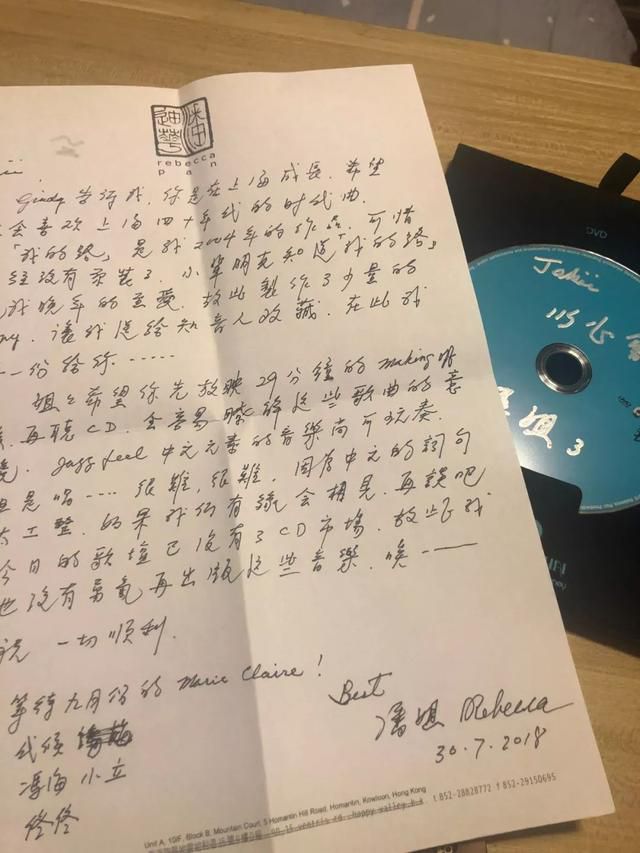 潘迪華
rebecca
pan
Gindy 告诉我, 你是在上海成長. 希望
会喜欢上海四十年代的时代曲.
「我的路」是我2004年的作品. 可惜
经没有录装了. 小辈朋友知道「我的路」
我晚年的至愛. 故此製作了少量的
讓我送给知音人收藏. 在此我
一份给你······
姐姐希望你先放映29分鐘的 making 吧
再聽CD. 会容易瞭解這些歌曲的意
境. Jazz feel 中文元素的音樂尚可玩奏.
但是唱···· 很難, 很難. 因為中文的詞句
太工整. 如果我们有缘会相見. 再談吧
今日的歌壇已没有了CD市場. 故此我
也没有勇氣再出版這些音樂. 唉——
祝 一切順利.
等待九月份的 Marie Claire!
代候
馮海 小立
佟佟
Best
潘姐 Rebecca
30.7.2018
Unit A, 10/F, Block B, Mountain Court, 5 Homantin Hill Road, Homantin, Kowloon, Hong Kong
t 852-28828772 f 852-29150695
DVD
Jakii